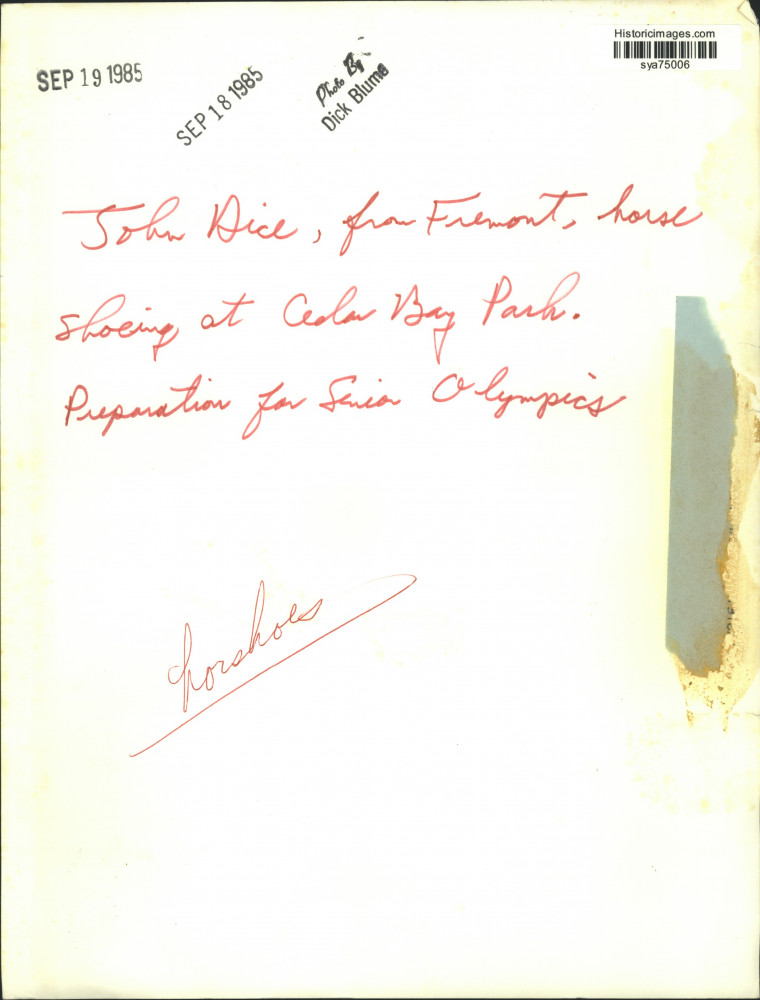 Historicimages.com
sya75006
SEP 19 1985
SEP 18 1985
Photo By
Dick Blume
John Dice, from Fremont, horse
shoeing at Cedar Bay Park.
Preparation for Senior Olympics
horshoes